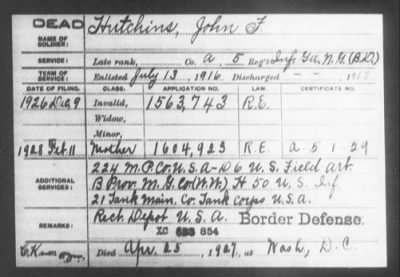 DEAD
NAME OF SOLDIER: Hutchins, John F.
SERVICE: Late rank, Co. A, 5 Reg't Inf Ga. N.G. (B.D.)
TERM OF SERVICE: Enlisted July 13, 1916. Discharged - -, 1917
DATE OF FILING. CLASS. APPLICATION NO. LAW. CERTIFICATE NO.
1926 Dec, 9 Invalid, 1563,743 R.E.
Widow,
Minor,
1928 Feb. 11 Mother 1604,923 R.E. A-5-1-29
ADDITIONAL SERVICES: 224 M.P. Co. U.S.A - D 6 U.S. Field Art.
B Prov. M.G. Co (W.W.) H 50 U.S. Inf.
21 Tank Main. Co. Tank Corps U.S.A.
REMARKS: Rect. Depot U.S.A. Border Defense.
XC 683 854
Died Apr. 25, 1927, at Wash, D.C.